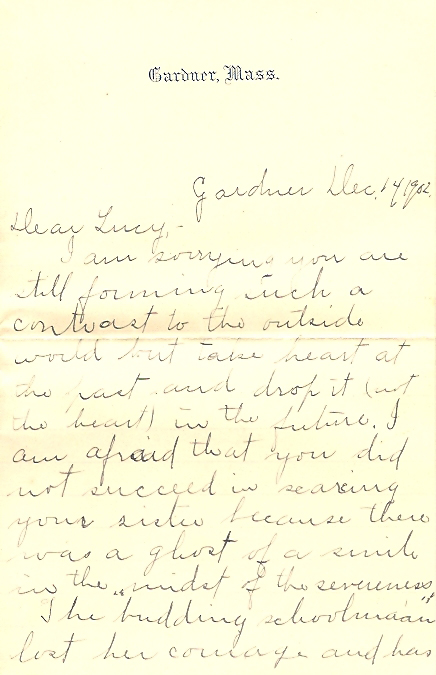 Gardner, Mass.
Gardner Dec. 14 1902.
Dear Lucy,-
I am sorry you are
still forming such a
contrast to the outside
world but take heart at
the past and drop it (not
the heart) in the future. I
am afraid that you did
not succeed in scaring
your sister because there
was a ghost of a smile
in the "midst of the severeness"
The budding schoolmaam
lost her courage and has